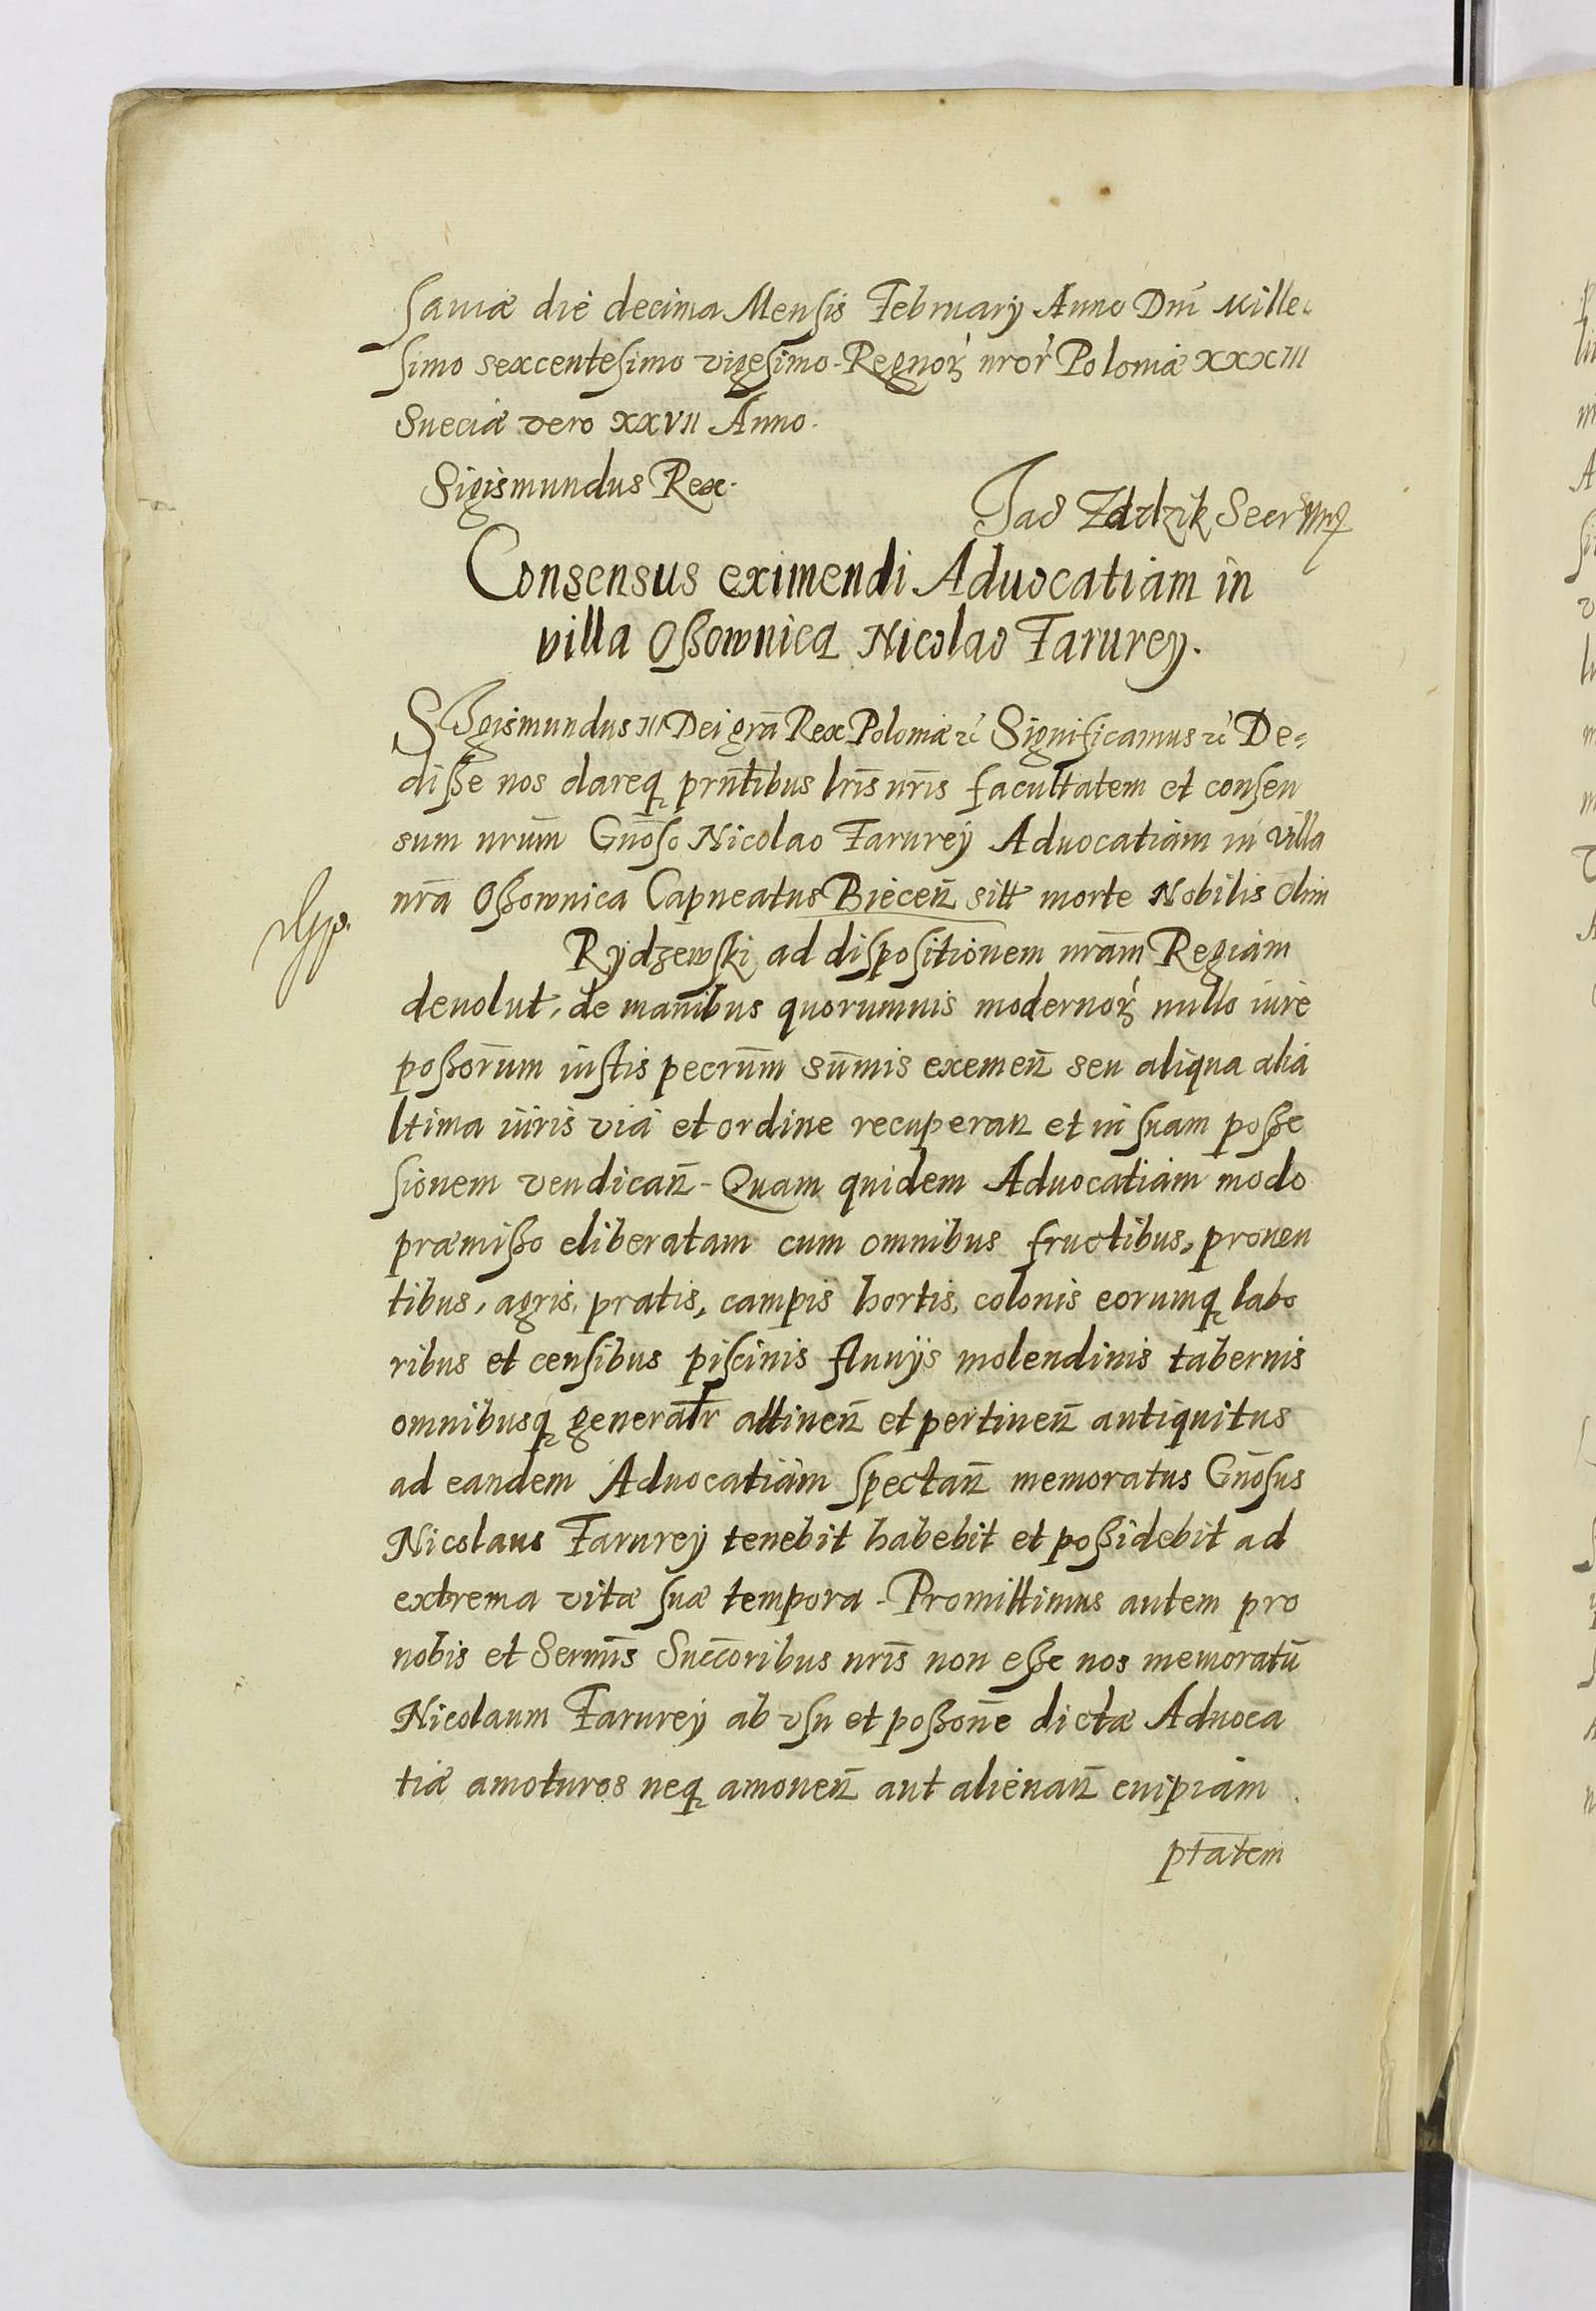 saviæ die decima Mensis February Anno Dnī Mille-
simo sexcentesimo vigesimo. Regnoꝝ nrōr Poloniæ XXXIII
Sueciæ vero XXVII Anno.
Sigismundus Rex.
Jacobus Zadzik Secr
Consensus eximendi Aduocatiam in
villa Oßownica Nicolao Tarurey.
SIgismundus III Dei grā Rex Poloniæ Significamus De=
diße nos dareqꝫ prn̄tibus lrīs nrīs facultatem et consen
sum nrūm Gn̄oso Nicolao Tarurey Aduocatiam in villa
nrā Oßownica Capneatus Biecen̄ sitt morte Nobilis olim
Rydzewski ad dispositionem nrām Regiam
deuolut. de manibus quorumuis modernoꝝ nullo iure
poßorūm iustis pecrūm sum̄is exemen̄ seu aliqua alia
ltima iuris via et ordine recuperan et in suam poße
sionem vendican̄ - Quam quidem Aduocatiam modo
præmißo eliberatam cum omnibus fructibus, prouen
tibus, agris, pratis, campis hortis, colonis eorumqꝫ labo
ribus et censibus piscinis fluuijs molendinis tabernis
omnibusqꝫ generatr̄ attinen̄ et pertinen̄ antiquitus
ad eandem Aduocatiam spectan̄ memoratus Gn̄osus
Nicolaus Tarurey tenebit habebit et poßidebit ad
extrema vitæ suæ tempora. Promittimus autem pro
nobis et Sermīs Succ̄oribus nrīs non eße nos memoratū
Nicolaum Tarurey ab vsu et poßon̄e dictæ Aduoca
tiæ amoturos neqꝫ amouen̄ aut alienan̄ cuipiam
ptātem